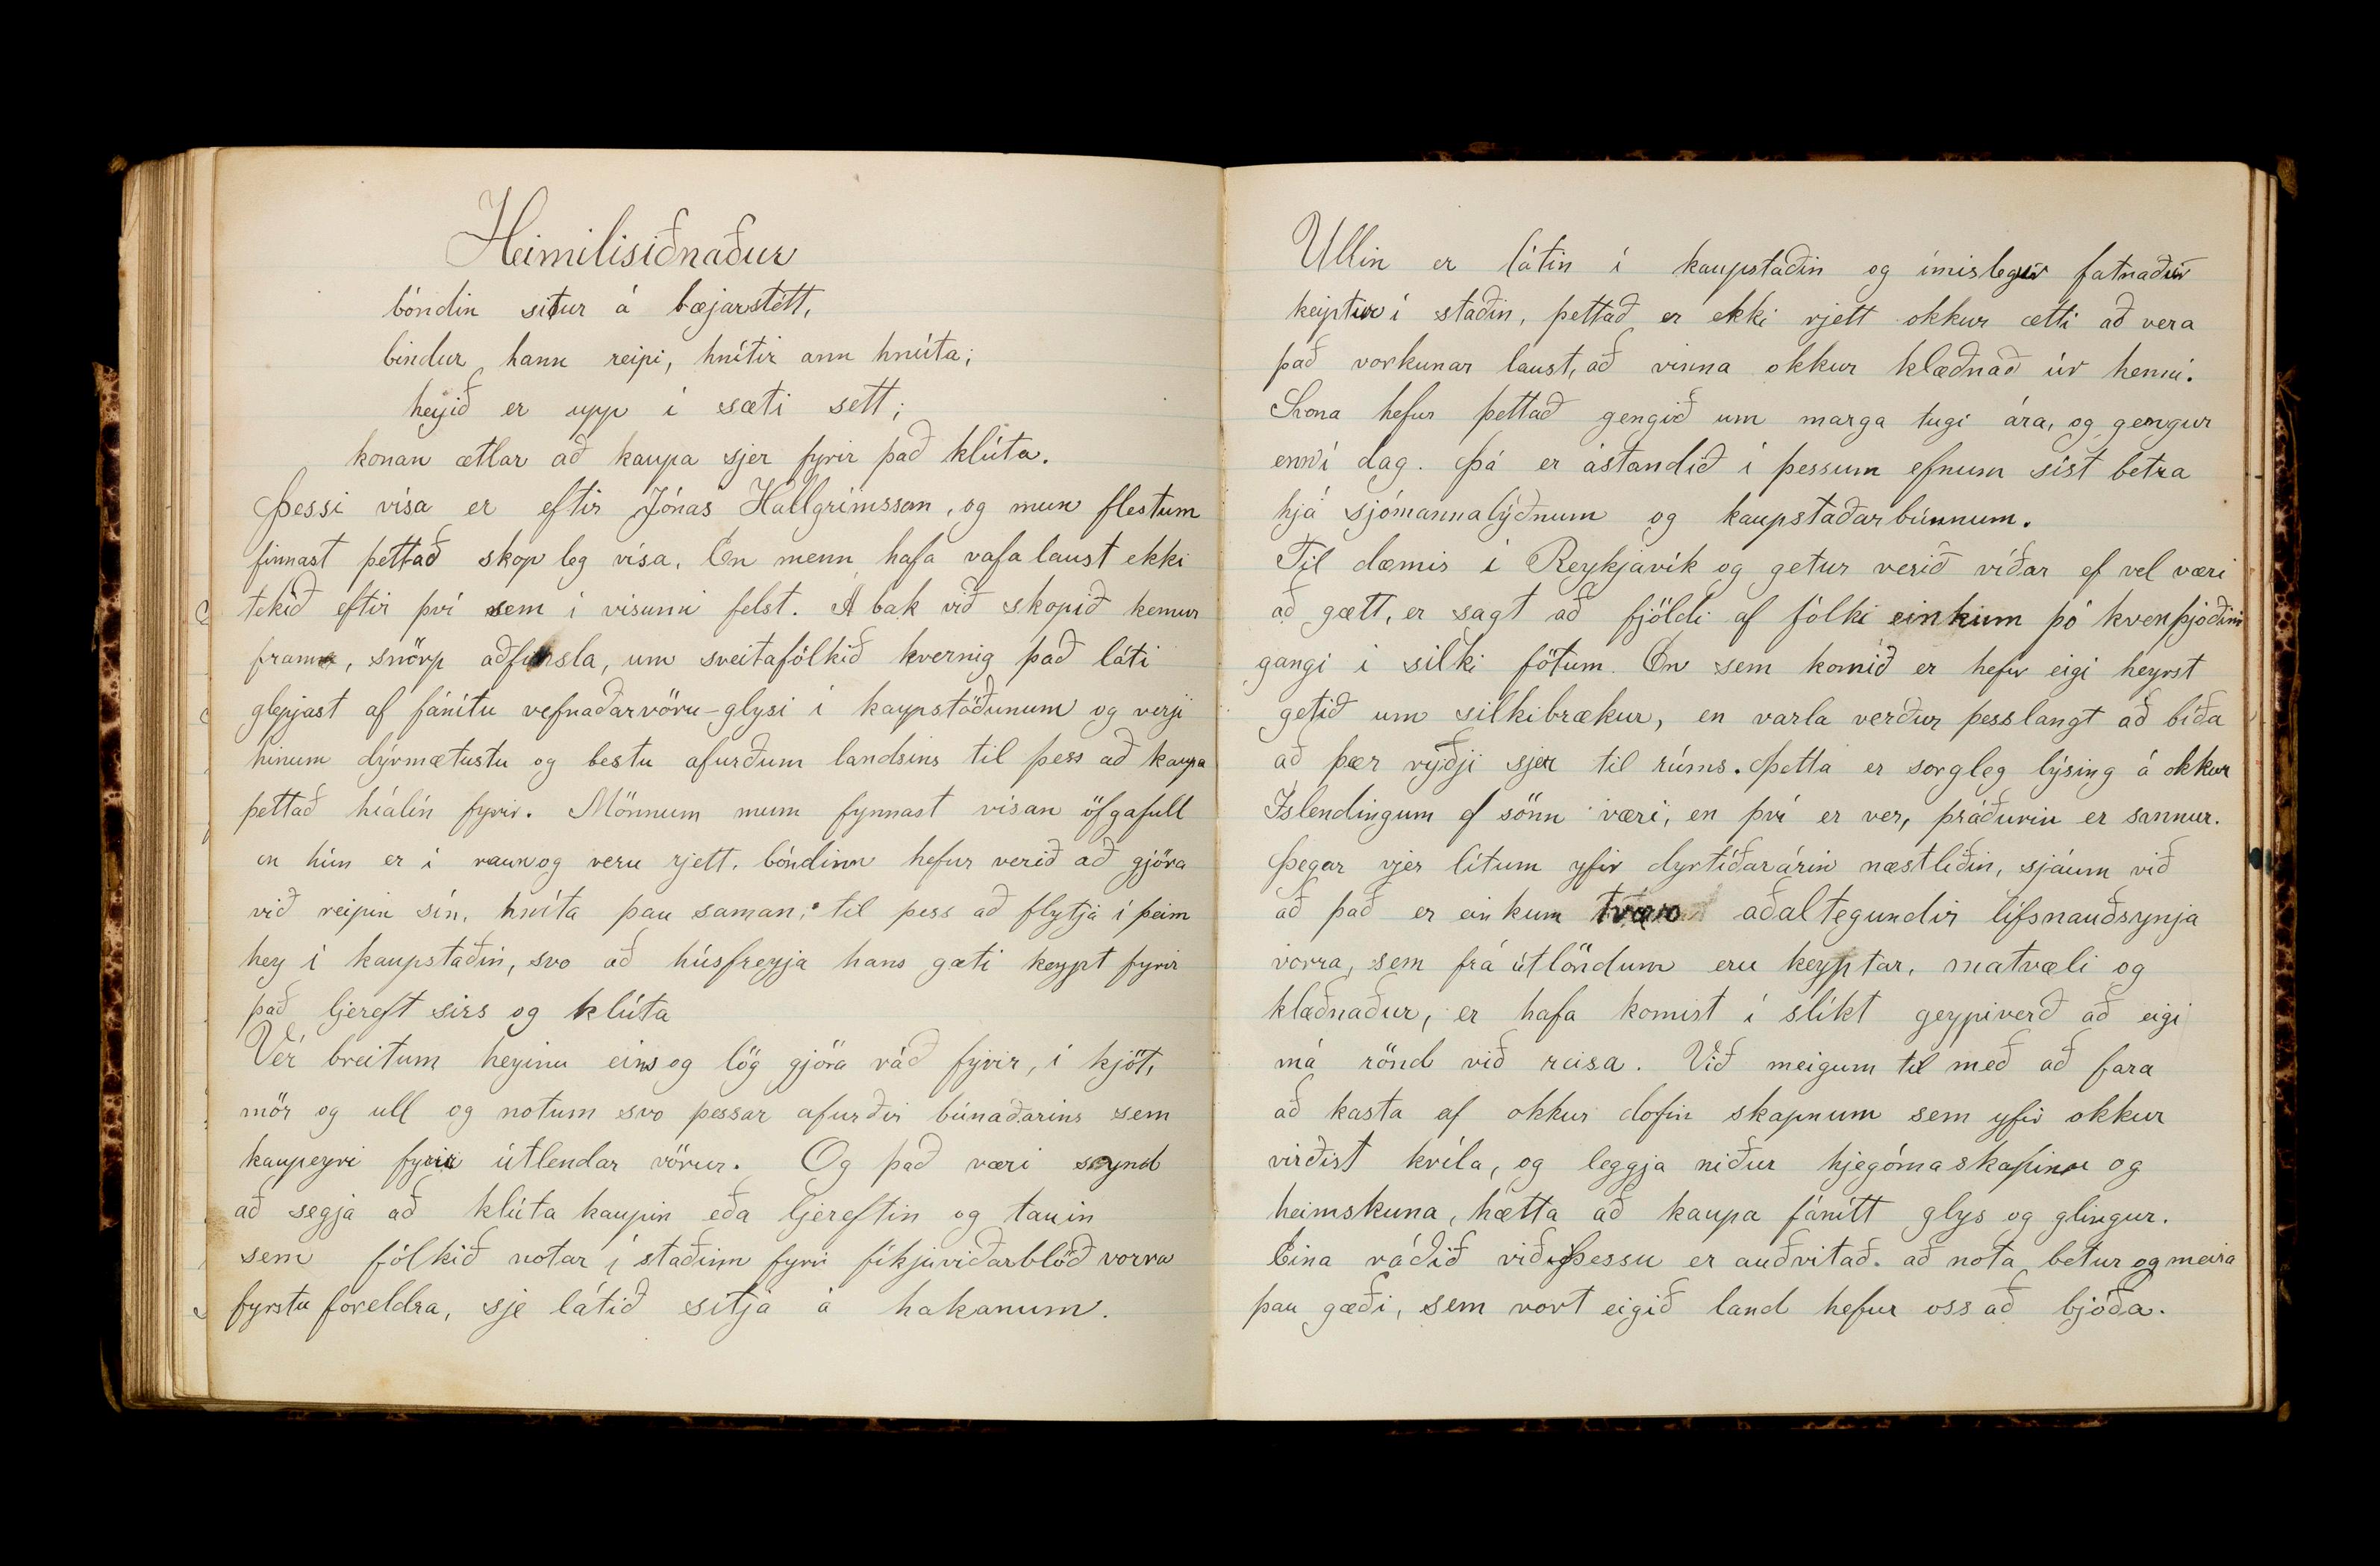 Heimilisiðnaður
bóndin situr á bæjarstétt,
bindur hann reipi, hnítir ann hnúta;
heyið er upp í sæti sett;
konan ætlar að kaupa sjer fyrir það klúta.
Þessi vísa er eftir Jónas Hallgrímsson, og mun flestum
finnast þettað skop leg vísa. En menn hafa vafa laust ekki
tekið eftir því sem í vísunni felst. Á bak við skopið kemur
fram, snörp aðfinsla, um sveitafólkið kvernig það láti
glepjast af fánítu vefnaðarvöru-glysi í kaupstöðunum og verji
hinum dýrmætustu og bestu afurðum landsins til þess að kaupa
þettað híalín fyrir. Mönnum mum fynnast vísan öfgafull
en hún er í raun og veru rjett. bóndinn hefur verið að gjöra
við reipin sín, hníta þau saman, til þess að flytja í þeim
hey í kaupstaðin, svo að húsfreyja hans gæti keypt fyrir
það ljereft sirs og klúta
Vér breitum heyinu eins og lög gjöra ráð fyrir, í kjöt,
mör og ull og notum svo þessar afurðir búnaðarins sem
kaupeyri fyrir útlendar vörur. Og það væri synd
að segja að klúta kaupin eða ljereftin og tauin
sem fólkið notar í staðinn fyrir fíkjuviðarblöð vorra
fyrstu foreldra, sje látið sitja á hakanum.
Ullin er látin í kaupstaðin og ímislegur fatnaður
keiptur í staðin, þettað er ekki rjett okkur ætti að vera
það vorkunar laust, að vinna okkur klæðnað úr henni.
Svona hefur þettað gengið um marga tugi ára, og gengur
enn í dag. Þá er ástandið í þessum efnum síst betra
hjá sjómannalýðnum og kaupstaðarbúunum.
Til dæmis í Reykjavík og getur verið víðar ef vel væri
að gætt, er sagt að fjöldi af fólki einkum þó kvenþjóðin
gangi í silki fötum. En sem komið er hefur eigi heyrst
getið um silkibrækur, en varla verður þess langt að bíða
að þær ryðji sjer til rúms. Þetta er sorgleg lýsing á okkur
Íslendingum ef sönn væri, en því er ver, þráðurin er sannur.
Þegar vjer lítum yfir dyrtíðarárin næstliðin, sjáum við
að það er einkum tvær aðaltegundir lífsnauðsynja
vorra, sem frá útlöndum eru keyptar, matvæli og
klæðnaður, er hafa komist í slíkt geypiverð að eigi
má rönd við reisa. Við meigum til með að fara
að kasta af okkur dofin skapnum sem yfir okkur
virðist kvíla, og leggja niður hjegómaskapinn og
heimskuna, hætta að kaupa fánítt glys og glingur.
Eina ráðið við Þessu er auðvitað. að nota betur og meira
þau gæði, sem vort eigið land hefur oss að bjóða.